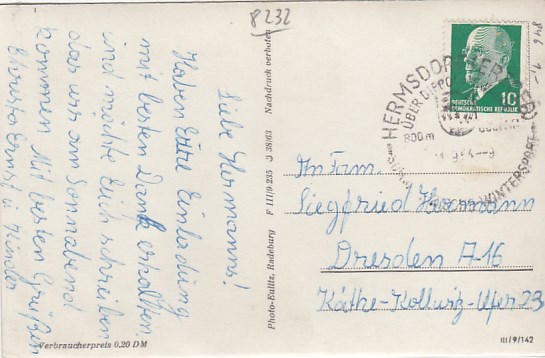 8232
846
1,-
Liebe Hermanns!
Haben Eure Einladung
mit besten Dank erhalten
und möchte Euch schreiben
das wir am Sonnabend
kommen. Mit besten Grüßen
Ernst u. Kinder
Verbraucherpreis 0,20 DM
Photo-Eulitz, Radeburg F III/9/235 J 28/63 Nachdruck verboten
HERMSDORF
ÜBER DIPPO
800m
WINTERSPORT
DEUTSCHE
DEMOKRATISCHE REPUBLIK
10
An Fam.
Siegfried Hermann
Dresden A-16
Käthe-Kollwitz-Ufer 23
III/9/142